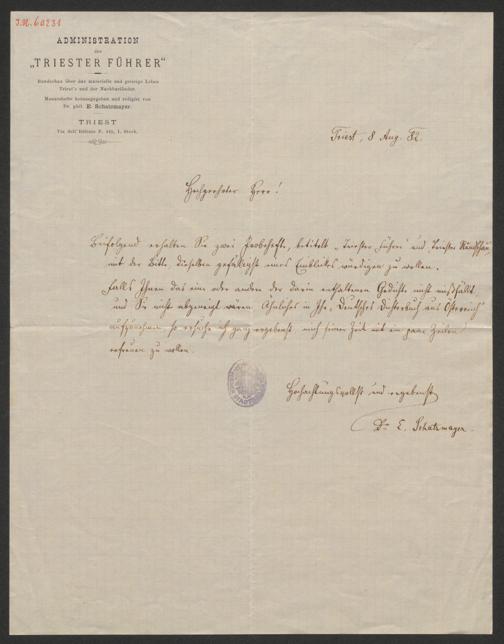 I.N. 60231
ADMINISTRATION
des
„TRIESTER FÜHRER“
Rundschau über das materielle und geistige Leben
Triest's und der Nachbarländer.
Monatshefte herausgegeben und redigirt von
Dr. phil. E. Schatzmayer.
TRIEST
Via dell' Istituto
I. Stock.
Triest, 8 Aug. 82.
Hochgeehrter Herr!
Beifolgend erhalten Sie zwei Probehefte, betitelt „Triester Führer“ und Triester Rundschau,
mit der Bitte, dieselben gefälligst eines Einblickes würdigen zu wollen.
Falls Ihnen das eine oder andere der darin enthaltenen Gedichte nicht mißfällt
und Sie nicht abgeneigt wären, Ähnliches in Ihr „Deutsches Dichterbuch aus Österreich“
aufzunehmen, so ersuche ich ganz ergebenst, mich seiner Zeit mit ein paar Zeilen
erfreuen zu wollen.
Hochachtungsvollst und ergebenst
Dr. E. Schatzmayer.